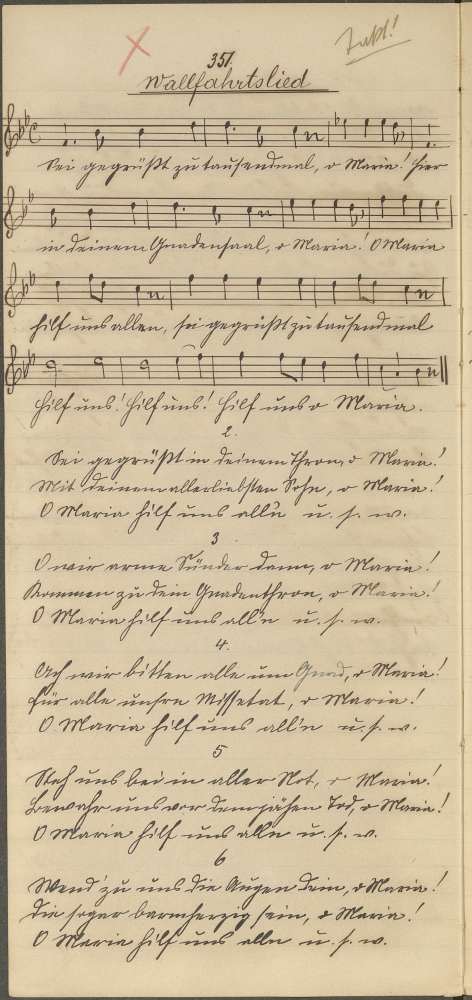 351.
Wallfahrtslied
Sei gegrüßt zu tausendmal, o Maria! Hier
in deinem Gnadensaal, o Maria! O Maria
hilf uns allen, sei gegrüßt zu tausendmal
Hilf uns! Hilf uns! Hilf uns o Maria.
2.
Sei gegrüßt in deinem Thron, o Maria!
Mit deinem allerliebsten Sohn, o Maria!
O Maria hilf uns all'n u. s. w.
3
O wir arme Sünder dann, o Maria!
Kommen zu dein Gnadenthron, o Maria!
O Maria hilf uns all'n u. s. w.
4.
Ach wir bitten alle um Gnad, o Maria!
Für alle unsre Missetat, o Maria!
O Maria hilf uns all'n u. s. w.
5
Steh uns bei in aller Not, o Maria!
Bewahr uns vor dem jähen Tod, o Maria!
O Maria hilf uns alln u. s. w.
6
Wend' zu uns die Augen dein, o Maria!
Die sogar barmherzig sein, o Maria!
O Maria hilf uns alln u. s. w.